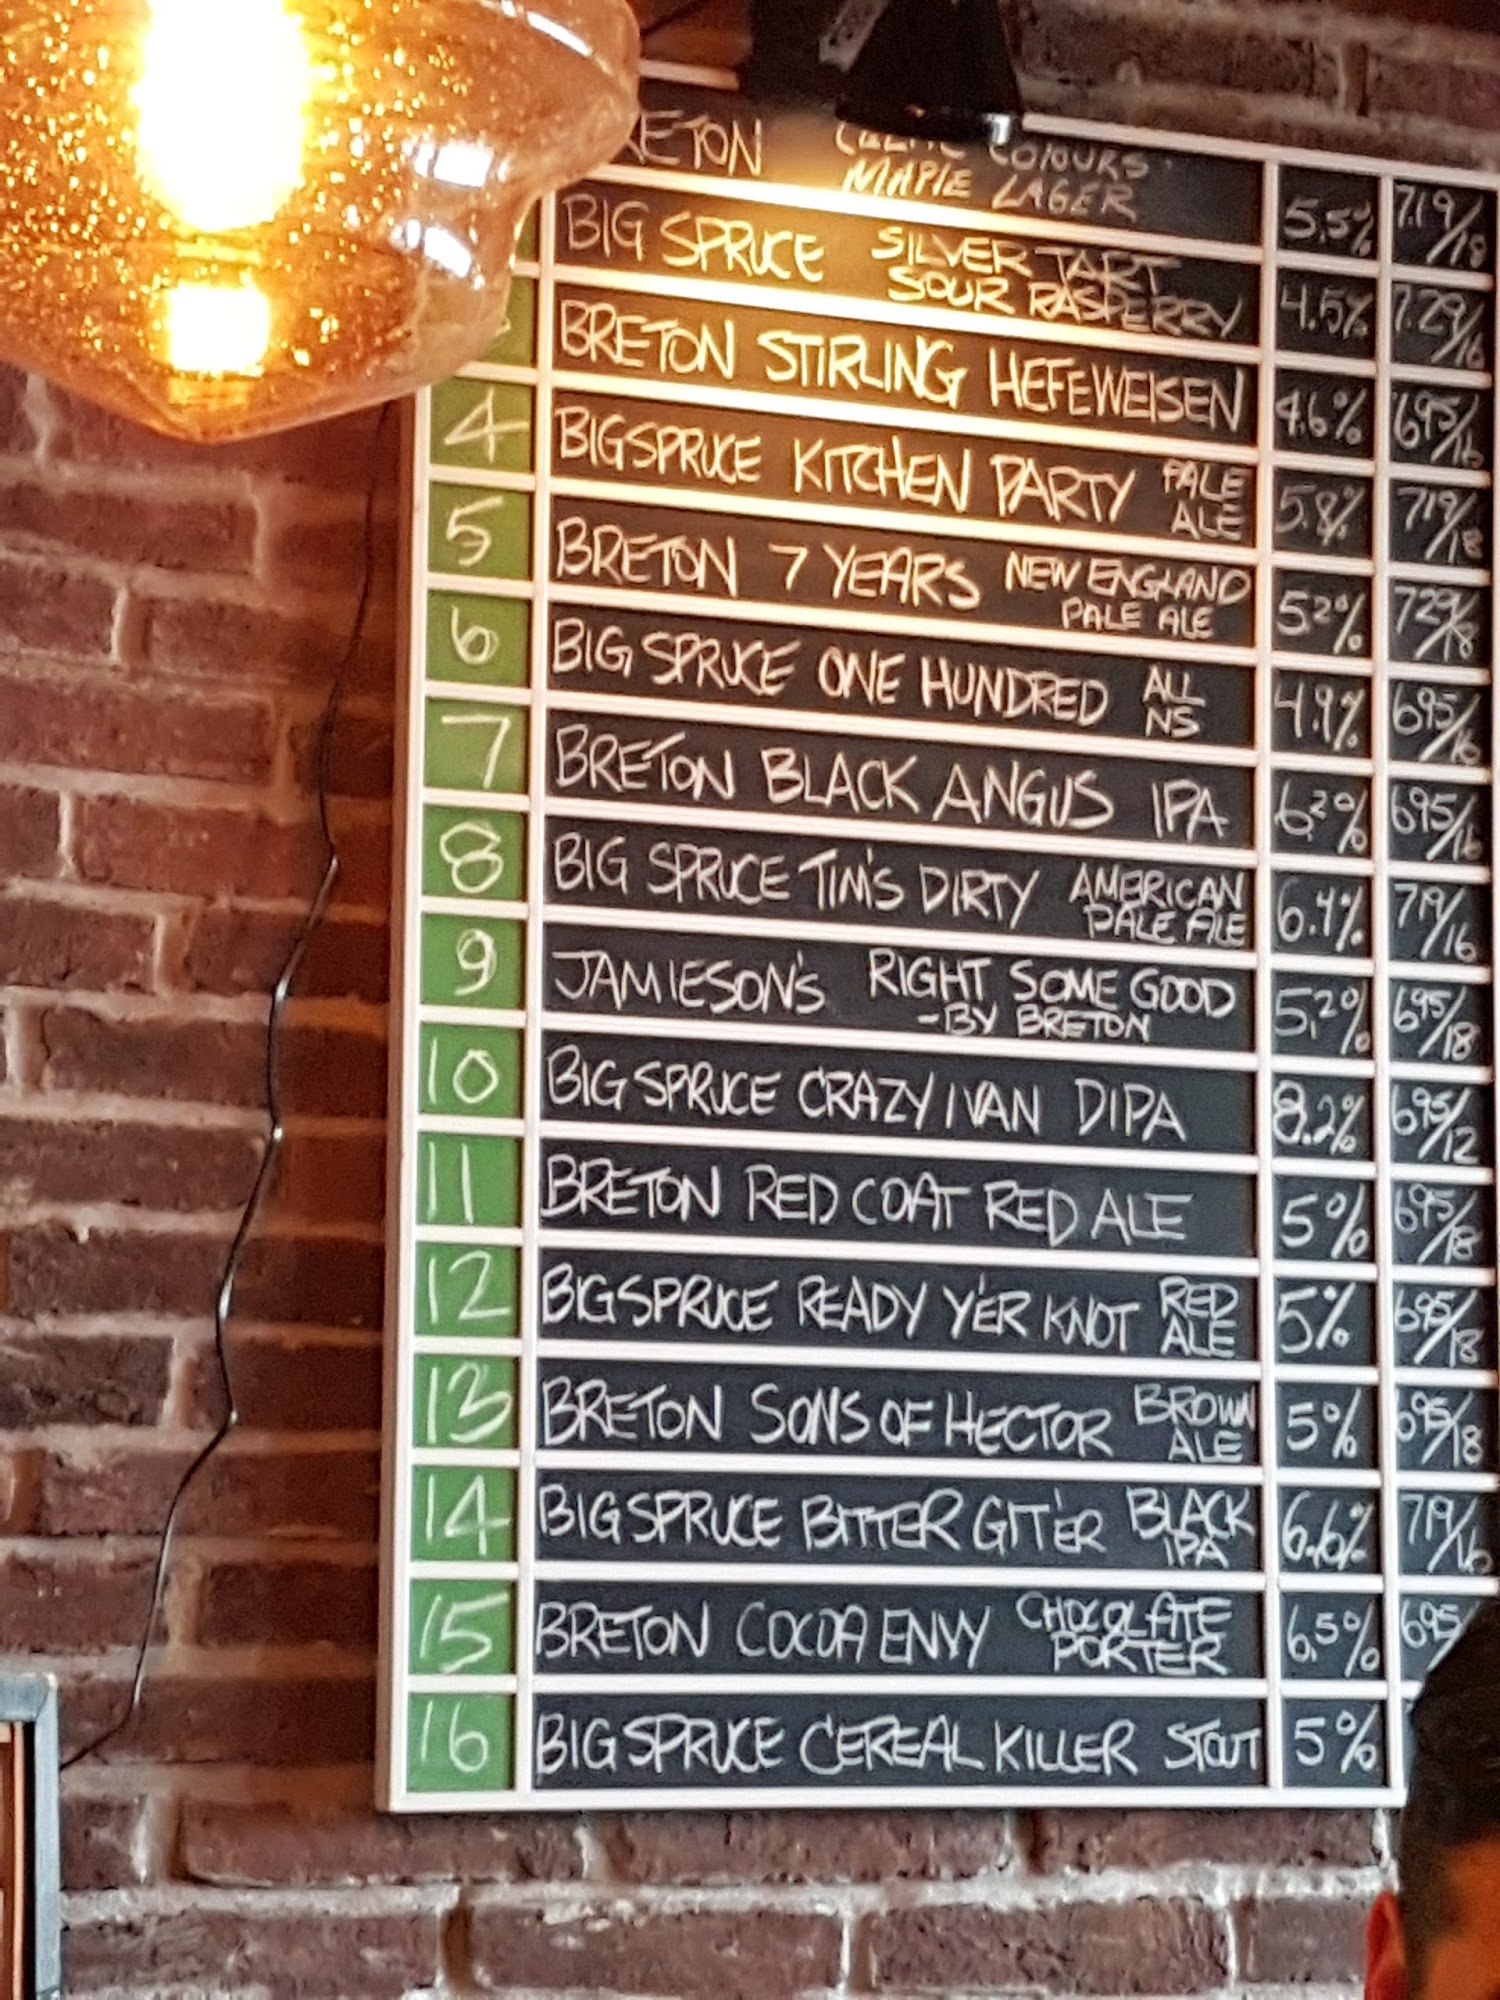 BRETON CELTIC COLOURS 5.5% 7.19/18
MAPLE LAGER
BIG SPRUCE SILVER TART 4.5% 7.29/16
SOUR RASPERRY
BRETON STIRLING HEFEWEISEN 4.6% 695/16
4 BIG SPRUCE KITCHEN PARTY PALE 5.8% 719/18
ALE
5 BRETON 7 YEARS NEW ENGLAND 5.2% 729/18
PALE ALE
6 BIG SPRUCE ONE HUNDRED ALL 4.9% 695/16
NS
7 BRETON BLACK ANGUS IPA 6.2% 695/16
8 BIG SPRUCE TIM'S DIRTY AMERICAN 6.4% 719/16
PALE ALE
9 JAMIESON'S RIGHT SOME GOOD 5.2% 695/18
-BY BRETON
10 BIG SPRUCE CRAZY IVAN DIPA 8.2% 695/12
11 BRETON RED COAT RED ALE 5% 695/18
12 BIG SPRUCE READY Y'ER KNOT RED 5% 695/18
ALE
13 BRETON SONS OF HECTOR BROWN 5% 695/18
ALE
14 BIG SPRUCE BITTER GIT'ER BLACK 6.6% 719/16
IPA
15 BRETON COCOA ENVY CHOCOLATE 6.5% 695/
PORTER
16 BIG SPRUCE CEREAL KILLER STOUT 5%